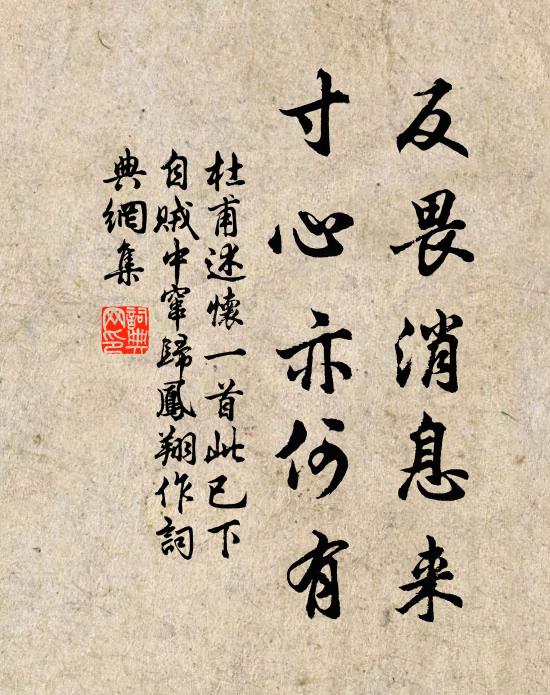 反畏消息来
寸心亦何有
杜甫述懷一首此已下
自贼中窜歸鳳翔作詞
典網集
詞典網印